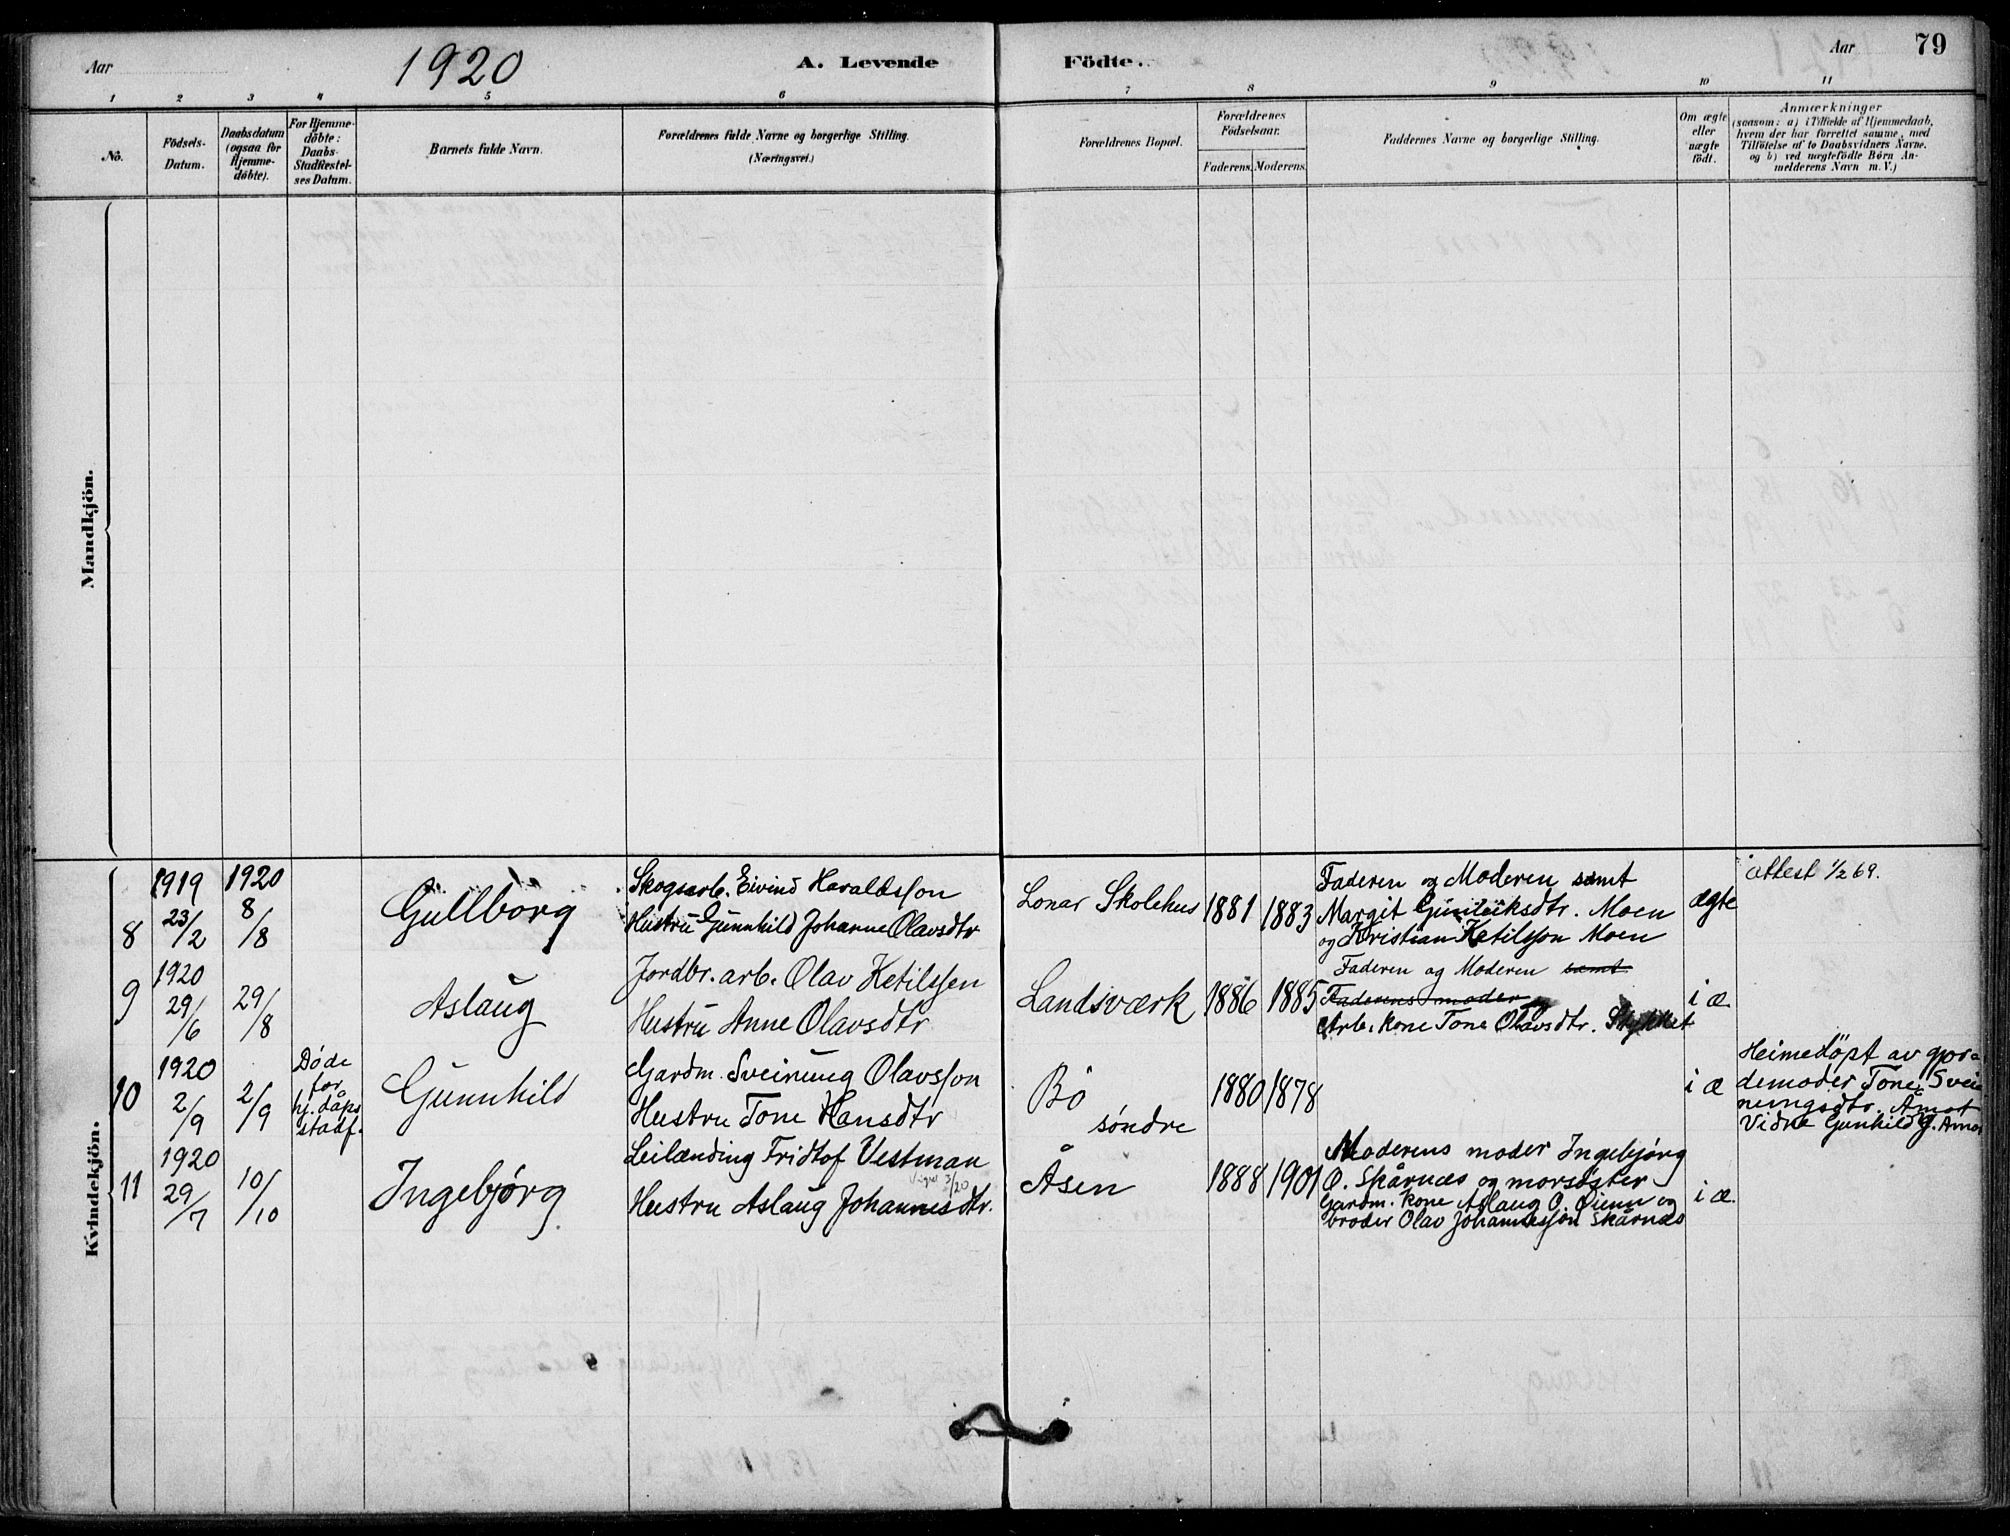 Aar 1920 A. Levende Födte. Aar 79
1 2 3 4 5 6 7 8 9 10 11
Nô. Födsels-Datum. Daabsdatum (ogsaa for Hjemme-döbte). For Hjemme-döbte: Daabs-Stadfestel-ses Datum. Barnets fulde Navn. Forældrenes fulde Navne og borgerlige Stilling. (Næringsvei.) Forældrenes Bopæl. Forældrenes Födselsaar. Faderens. Moderens. Faddernes Navne og borgerlige Stilling. Om ægte eller uægte födt. Anmærkninger (saasom: a) i Tilfælde af Hjemmedaab, hvem der har forrettet samme, med Tilföielse af to Daabsvidners Navne. og b) ved uægtefödte Börn An-melderens Navn m. V.)
Mandkjön.
Kvindekjön.
8 1919 23/2 1920 8/8 Gullborg
Skogsarb. Eivind Haraldsson
Hustru Gunnhild Johanne Olavsdtr
Lonar Skolehus 1881 1883
Faderen og Moderen samt
Margit Gunleiksdtr. Moen
og Kristian Ketilsson Moen
ægte
attest 1/2 69.
9 1920 29/6 29/8 Aslaug
Jordbr. arb. Olav Ketilssen
Hustru Anne Olavsdtr
Landsværk 1886 1885
Faderen og Moderen samt
Faderens moder og
Arb. kone Tone Olavsdtr.
i æ
10 1920 2/9 2/9
Døde
for
hj. dåps
stadf.
Gunnhild
Gardm. Sveinung Olavsson
Hustru Tone Hansdtr
Bö
søndre
1880 1878
i æ
Heimedöpt av gjor-
demoder Tone Svei
nungsdtr. Åmot
Vidne Gunhild G. Amo
11 1920 29/7 10/10 Ingebjørg
Leilænding Fridtof Vestman
Vigd 3/20
Hustru Aslaug Johannesdtr.
Åsen 1888 1901
Moderens moder Ingebjørg
O. Skårnæs og morsöster
Gardm. kone Aslaug O. Øiunn og
broder Olav Johannesson Skårnæs
i æ